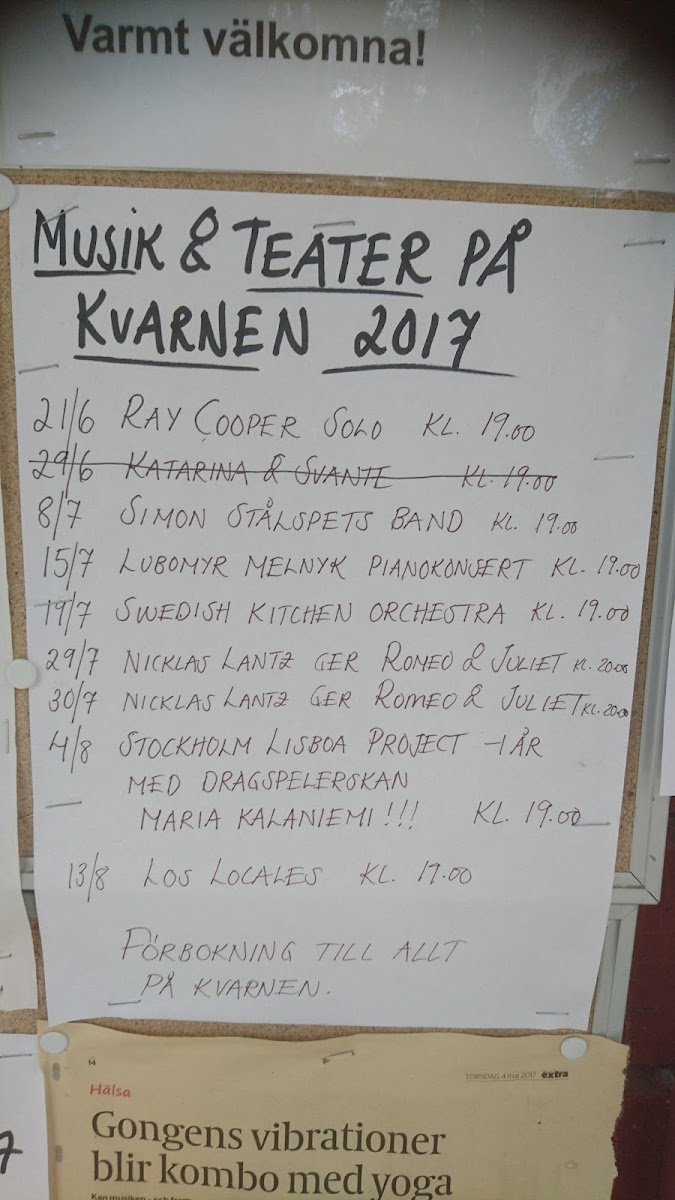 Varmt välkomna!
MUSIK & TEATER PÅ
KVARNEN 2017
21/6 RAY COOPER SOLO KL. 19.00
29/6 KATARINA & SVANTE KL. 19.00
8/7 SIMON STÅLSPETS BAND KL. 19.00
15/7 LUBOMYR MELNYK PIANOKONSERT KL. 19.00
19/7 SWEDISH KITCHEN ORCHESTRA KL. 19.00
29/7 NICKLAS LANTZ GER ROMEO & JULIET KL. 20.00
30/7 NICKLAS LANTZ GER ROMEO & JULIET KL. 20.00
4/8 STOCKHOLM LISBOA PROJECT - I ÅR
MED DRAGSPELERSKAN
MARIA KALANIEMI!!! KL. 19.00
13/8 LOS LOCALES KL. 17.00
FÖRBOKNING TILL ALLT
PÅ KVARNEN.
14
TORSDAG 4 maj 2017 extra
Hälsa
Gongens vibrationer
blir kombo med yoga
7